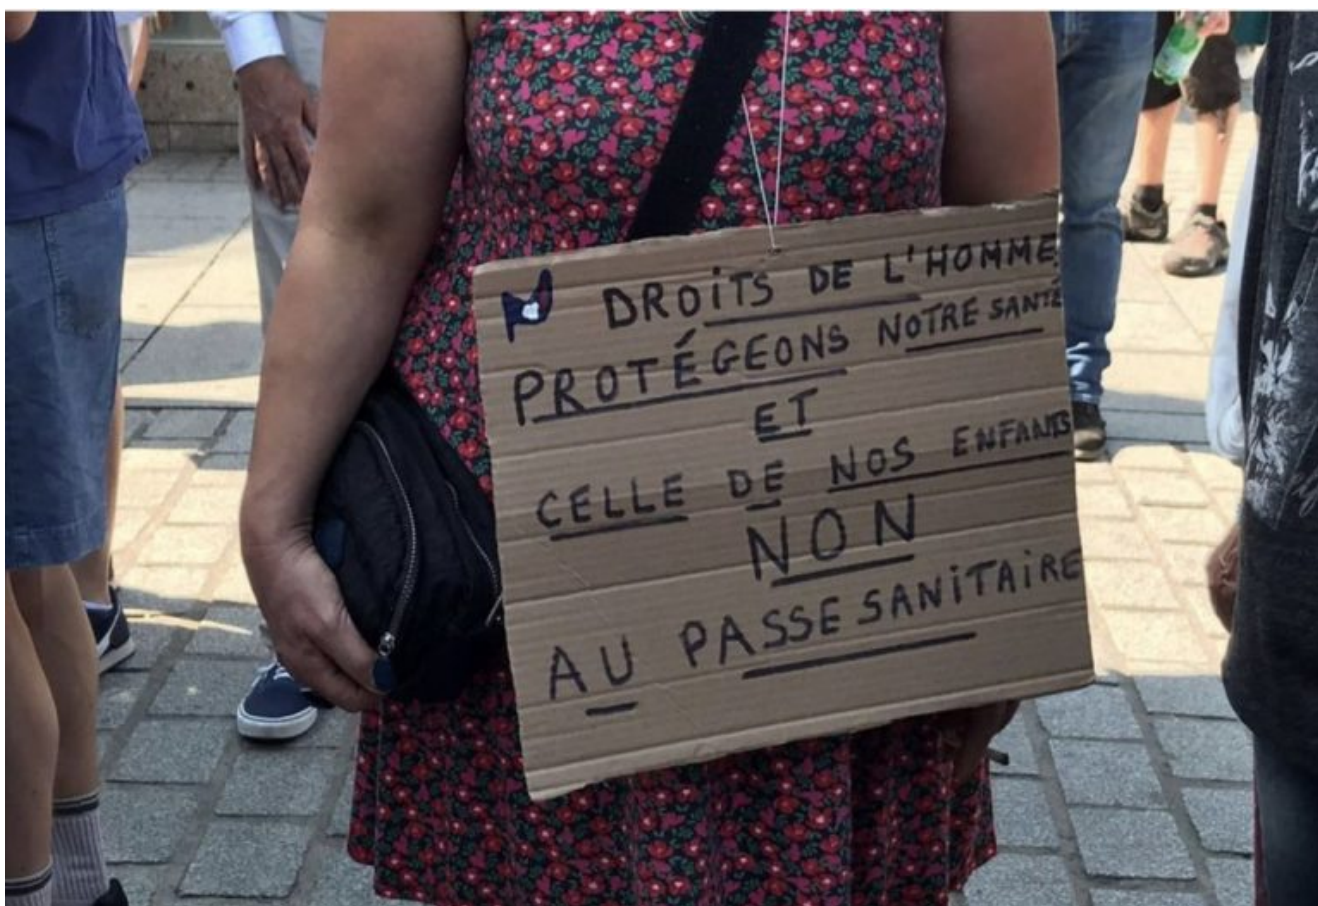 DROiTS DE L'HOMME
PROTÉGEONS NOTRE SANTÉ
ET
CELLE DE NOS ENFANTS
NON
AU PASSE SANiTAiRE